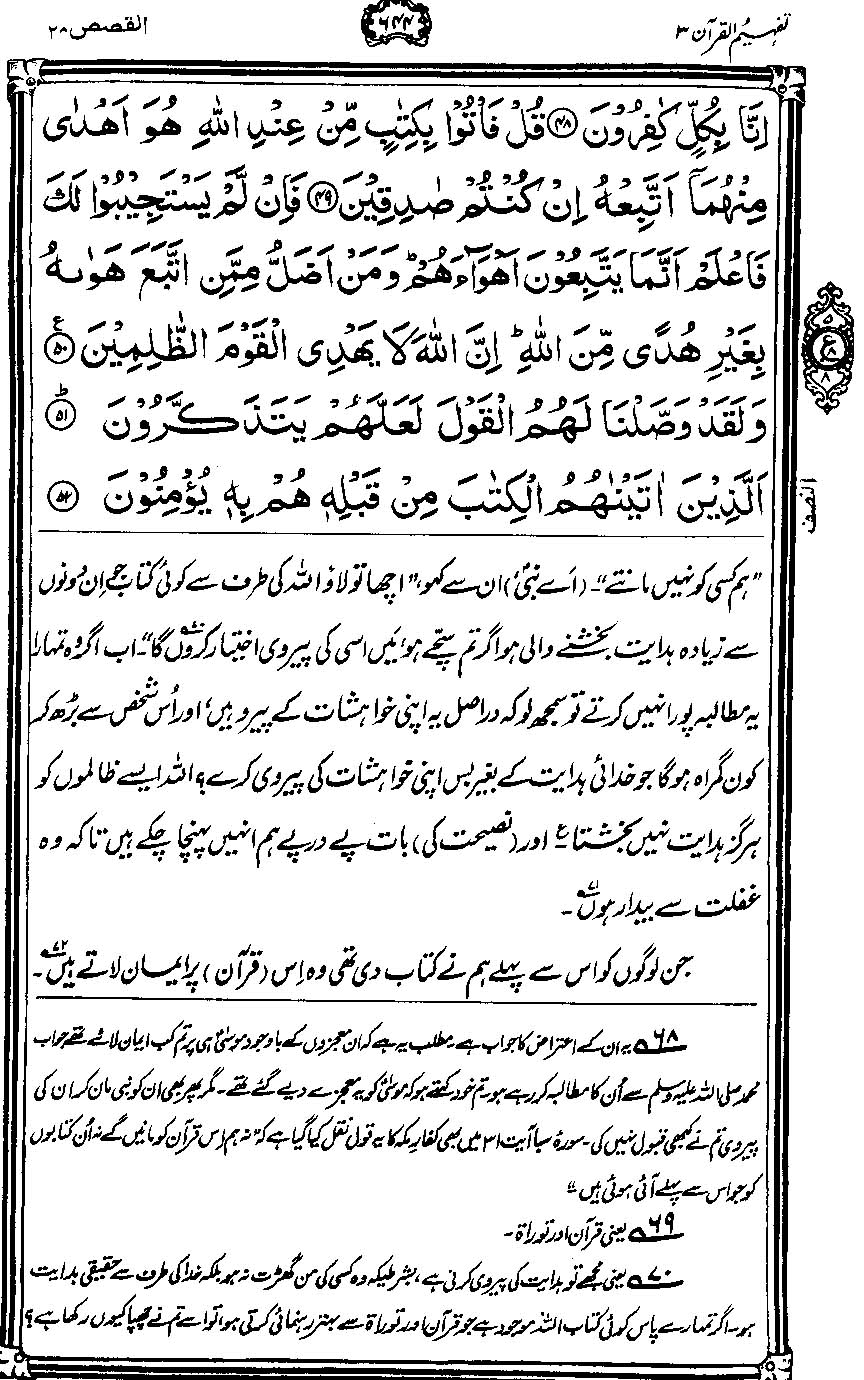 تفہیم القرآن ۳
۶۴۴
القصص ۲۸
اِنَّا بِكُلٍّ كٰفِرُوْنَ ﴿۴۸﴾ قُلْ فَاْتُوْا بِكِتٰبٍ مِّنْ عِنْدِ اللّٰهِ هُوَ اَهْدٰى
مِنْهُمَاۤ اَتَّبِعْهُ اِنْ كُنْتُمْ صٰدِقِيْنَ ﴿۴۹﴾ فَاِنْ لَّمْ يَسْتَجِيْبُوْا لَكَ
فَاعْلَمْ اَنَّمَا يَتَّبِعُوْنَ اَهْوَآءَهُمْ ؕ وَمَنْ اَضَلُّ مِمَّنِ اتَّبَعَ هَوٰىهُ
بِغَيْرِ هُدًى مِّنَ اللّٰهِ ؕ اِنَّ اللّٰهَ لَا يَهْدِى الْقَوْمَ الظّٰلِمِيْنَ ﴿۵۰﴾ ع
وَلَقَدْ وَصَّلْنَا لَهُمُ الْقَوْلَ لَعَلَّهُمْ يَتَذَكَّرُوْنَ ﴿۵۱﴾ ؕ
اَلَّذِيْنَ اٰتَيْنٰهُمُ الْكِتٰبَ مِنْ قَبْلِهٖ هُمْ بِهٖ يُؤْمِنُوْنَ ﴿۵۲﴾
۵
ع
۸
النصف
”ہم کسی کو نہیں مانتے“۔ (اَے نبیؐ) ان سے کہو، ”اچھا تو لاؤ اللہ کی طرف سے کوئی کتاب جو اِن دونوں
سے زیادہ ہدایت بخشنے والی ہو اگر تم سچّے ہو، مَیں اسی کی پیروی اختیار کروں گا۷۰“۔ اب اگر وہ تمہارا
یہ مطالبہ پورا نہیں کرتے تو سمجھ لو کہ دراصل یہ اپنی خواہشات کے پیرو ہیں، اور اُس شخص سے بڑھ کر
کون گمراہ ہوگا جو خدائی ہدایت کے بغیر بس اپنی خواہشات کی پیروی کرے؟ اللہ ایسے ظالموں کو
ہرگز ہدایت نہیں بخشتا ع اور (نصیحت کی) بات پے درپے ہم انہیں پہنچا چکے ہیں تاکہ وہ
غفلت سے بیدار ہوں۷۱۔
جن لوگوں کو اس سے پہلے ہم نے کتاب دی تھی وہ اِس (قرآن) پر ایمان لاتے ہیں۷۲۔
۶۸ یہ ان کے اعتراض کا جواب ہے۔ مطلب یہ ہے کہ ان معجزوں کے باوجود موسیٰؑ ہی پر تم کب ایمان لائے تھے جو اب
محمد صلی اللہ علیہ وسلم سے اُن کا مطالبہ کر رہے ہو۔ تم خود کہتے ہو کہ موسیٰؑ کو یہ معجزے دیے گئے تھے۔ مگر پھر بھی ان کو نبی مان کر ان کی
پیروی تم نے کبھی قبول نہیں کی۔ سورۂ سبا آیت ۳۱ میں بھی کفارِ مکہ کا یہ قول نقل کیا گیا ہے کہ ”نہ ہم اِس قرآن کو مانیں گے نہ اُن کتابوں
کو جو اس سے پہلے آئی ہوئی ہیں“
۶۹ یعنی قرآن اور توراۃ۔
۷۰ یعنی مجھے تو ہدایت کی پیروی کرنی ہے، بشرطیکہ وہ کسی کی من گھڑت نہ ہو بلکہ خدا کی طرف سے حقیقی ہدایت
ہو۔ اگر تمہارے پاس کوئی کتاب اللہ موجود ہے جو قرآن اور توراۃ سے بہتر رہنمائی کرتی ہو، تو اسے تم نے چھپا کیوں رکھا ہے؟